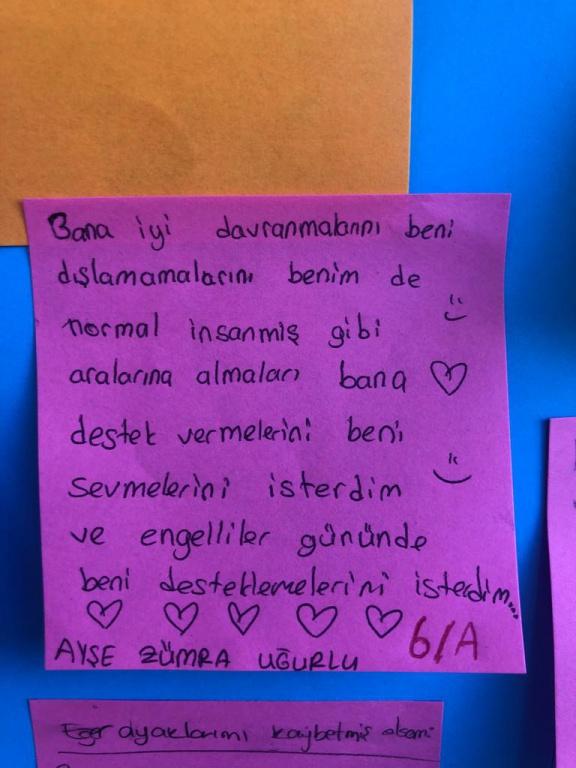 Bana iyi davranmalarını beni
dışlamamalarını benim de
normal insanmış gibi
aralarına almaları bana
destek vermelerini beni
sevmelerini isterdim
ve engelliler gününde
beni desteklemelerini isterdim...
6/A
AYŞE ZÜMRA UĞURLU
Eğer ayaklarımı kaybetmiş olsam